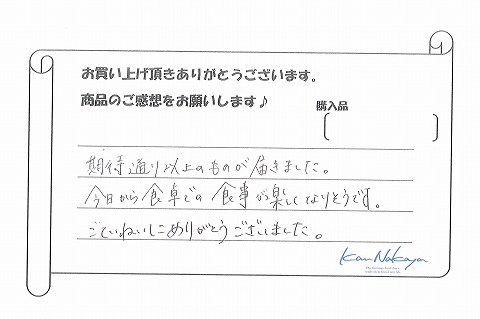 お買い上げ頂きありがとうございます。
商品のご感想をお願いします♪
購入品
期待通り以上のものが届きました。
今日から食卓での食事が楽しくなりそうです。
ごていねいにありがとうございました。
Kan Nakaya